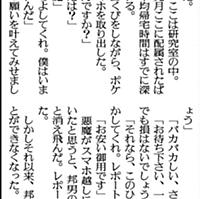 ここは研究室の中。
月ここに配属されたば
均帰宅時間はすでに深
る。
くびをしながら、ポケ
ホを取り出した。
ですか？」
だ」
よしてくれ。僕はいま
んだ」
願いを叶えてみせまし
ょう」
「バカバカしい、さ
「お待ち下さい、一
でも損はないでしょ
「それなら、このひ
かしてくれ。レポート
「お安い御用です」
悪魔がスマホ越しに
いたと思うと、邦男の
と消え飛んだ。レポー
しかしそれ以来、邦
とができなくなった。